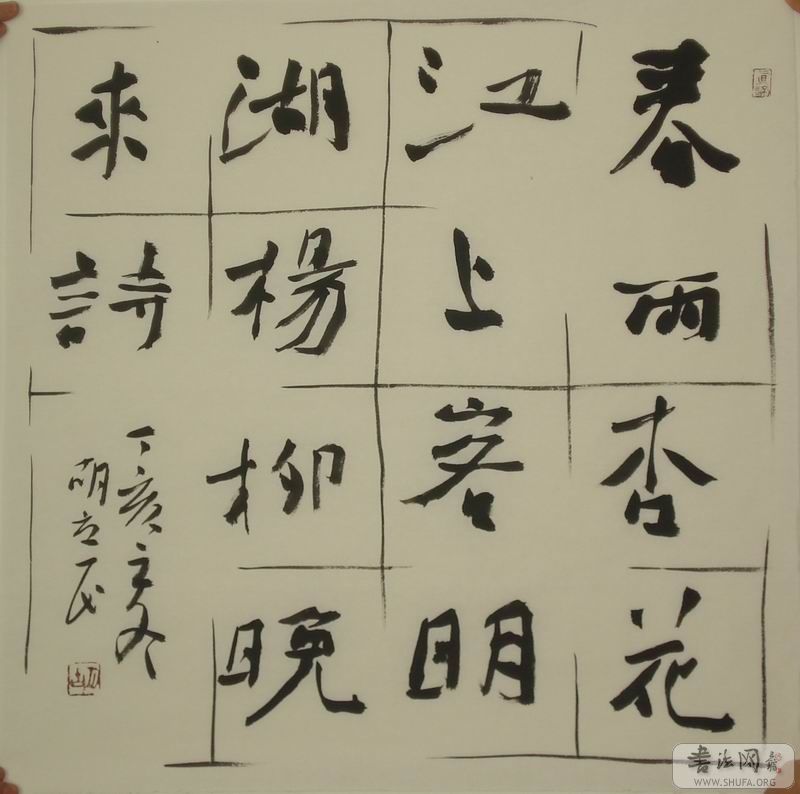 春雨杏花
江上客明
湖楊柳晚
來詩
丁亥之冬
胡立民
书法网
WWW.SHUFA.ORG